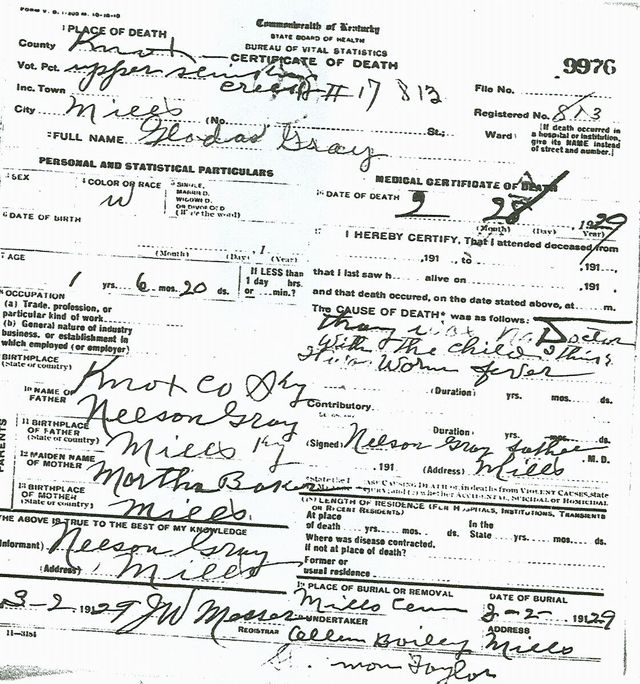 FORM V. S. 1-200 M. 10-18-10
Commonwealth of Kentucky
STATE BOARD OF HEALTH
BUREAU OF VITAL STATISTICS
CERTIFICATE OF DEATH
1 PLACE OF DEATH
County Knox
Vot. Pct. upper
Inc. Town creek # 17 812
City Mills (No. St.; Ward)
9976
File No.
Registered No. 813
(If death occurred in a hospital or institution, give its NAME instead of street and number.)
2 FULL NAME Glodas Gray
PERSONAL AND STATISTICAL PARTICULARS
3 SEX
4 COLOR OR RACE W
5 SINGLE, MARRIED, WIDOWED, OR DIVORCED (Write the word)
6 DATE OF BIRTH
(Month) (Day) 1 (Year)
7 AGE
1 yrs. 6 mos. 20 ds.
If LESS than 1 day hrs. or min.?
8 OCCUPATION
(a) Trade, profession, or particular kind of work
(b) General nature of industry business, or establishment in which employed (or employer)
9 BIRTHPLACE (State or country) Knox Co Ky
PARENTS
10 NAME OF FATHER Neelson Gray
11 BIRTHPLACE OF FATHER (State or country) Mills Ky
12 MAIDEN NAME OF MOTHER Martha Baker
13 BIRTHPLACE OF MOTHER (State or country) Mills
THE ABOVE IS TRUE TO THE BEST OF MY KNOWLEDGE
(Informant) Neelson Gray
(Address) Mills
3-2 1929 JW Messer
REGISTRAR
11-3184
MEDICAL CERTIFICATE OF DEATH
16 DATE OF DEATH
2 28, 1929
(Month) (Day) (Year)
17 I HEREBY CERTIFY, That I attended deceased from
, 191 , to , 191 ,
that I last saw h alive on , 191 ,
and that death occured, on the date stated above, at m.
The CAUSE OF DEATH* was as follows:
thay was no Doctor
with the child I think
it was Worm fever
(Duration) yrs. mos. ds.
Contributory
(Duration) yrs. mos. ds.
(Signed) Neelson Gray father M. D.
, 191 (Address) Mills
CAUSING DEATH, or in deaths from VIOLENT CAUSES, state
ACCIDENTAL, SUICIDAL or HOMICIDAL
LENGTH OF RESIDENCE (FOR HOSPITALS, INSTITUTIONS, TRANSIENTS OR RECENT RESIDENTS)
At place of death yrs. mos. ds. In the State yrs. mos. ds.
Where was disease contracted, if not at place of death?
Former or usual residence
PLACE OF BURIAL OR REMOVAL Mills Cem
DATE OF BURIAL 3-2- 1929
UNDERTAKER
ADDRESS
Mills
Taylor